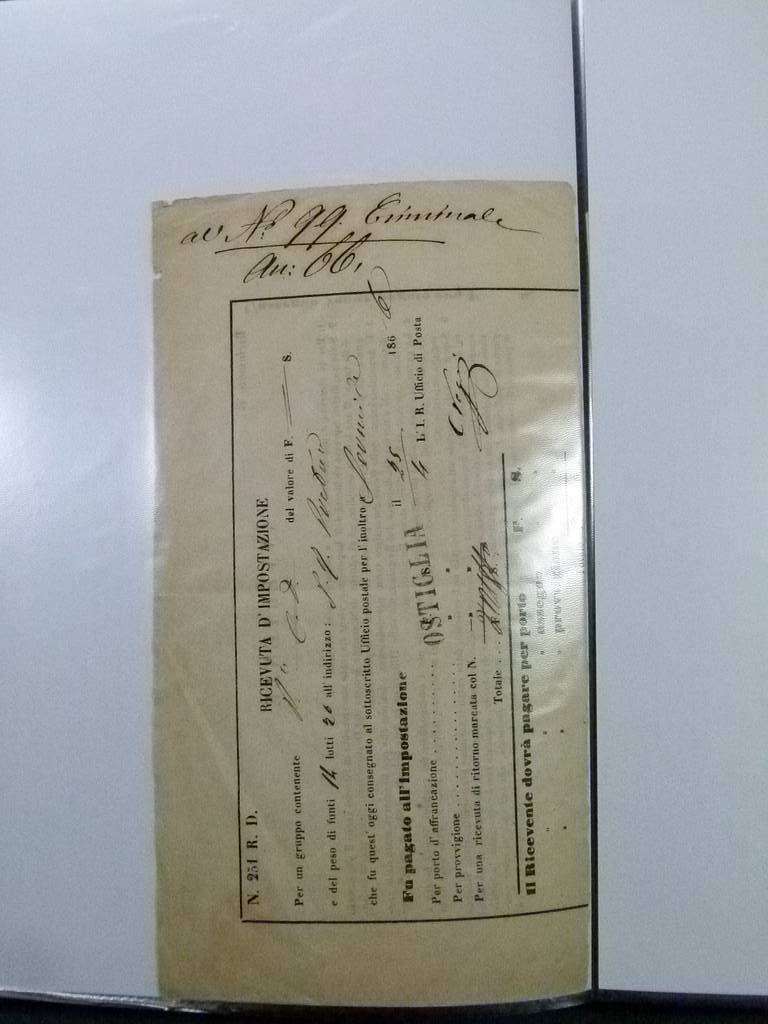 al N.o 99. Criminale
An: 66.
N. 251 R. D.
RICEVUTA D'IMPOSTAZIONE
Per un gruppo contenente del valore di F. S.
e del peso di funti 14 lotti 20 all'indirizzo:
che fu quest'oggi consegnato al sottoscritto Ufficio postale per l'inoltro a
OSTIGLIA il 25/4 186 6
Fu pagato all'Impostazione
L'I. R. Ufficio di Posta
Per porto d'affrancazione
Per provvigione
Per una ricevuta di ritorno marcata col N.
Totale
Il Ricevente dovrà pagare per porto F. S.
" " assegno
" " provvigione